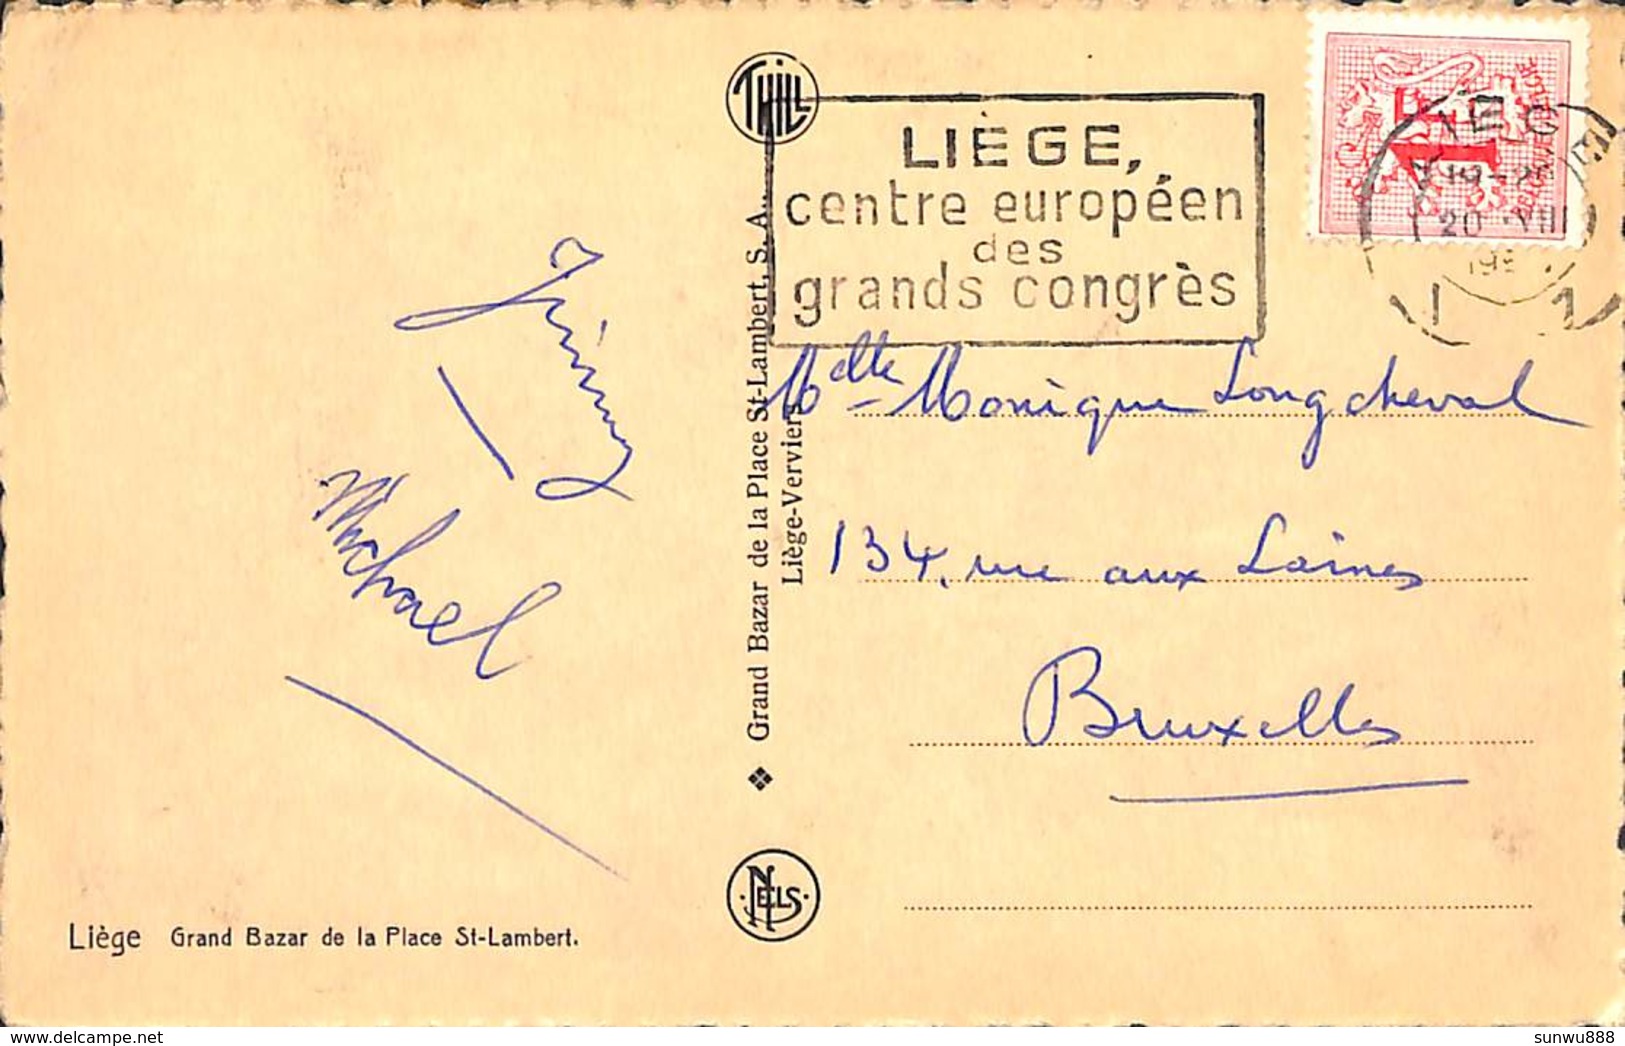 THILL
LIÈGE,
centre européen
des
grands congrès
20 VIII
Jimmy
Michael
Melle Monique Longcheval
134, rue aux Laines
Bruxelles
Grand Bazar de la Place St-Lambert, S. A.,
Liège-Verviers
NELS
Liège Grand Bazar de la Place St-Lambert.
delcampe.net
sunwu888